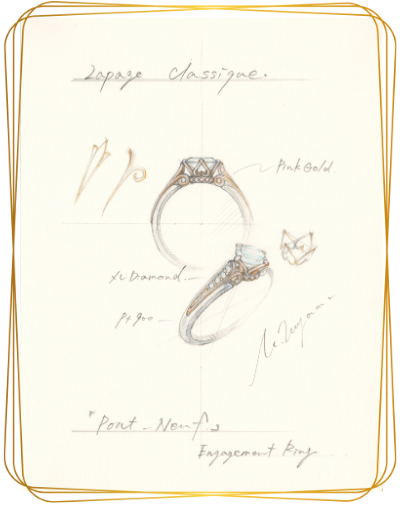 Lapage Classique.
Pink Gold.
Diamond.
Pt900
"Pont-Neuf"
Engagement Ring